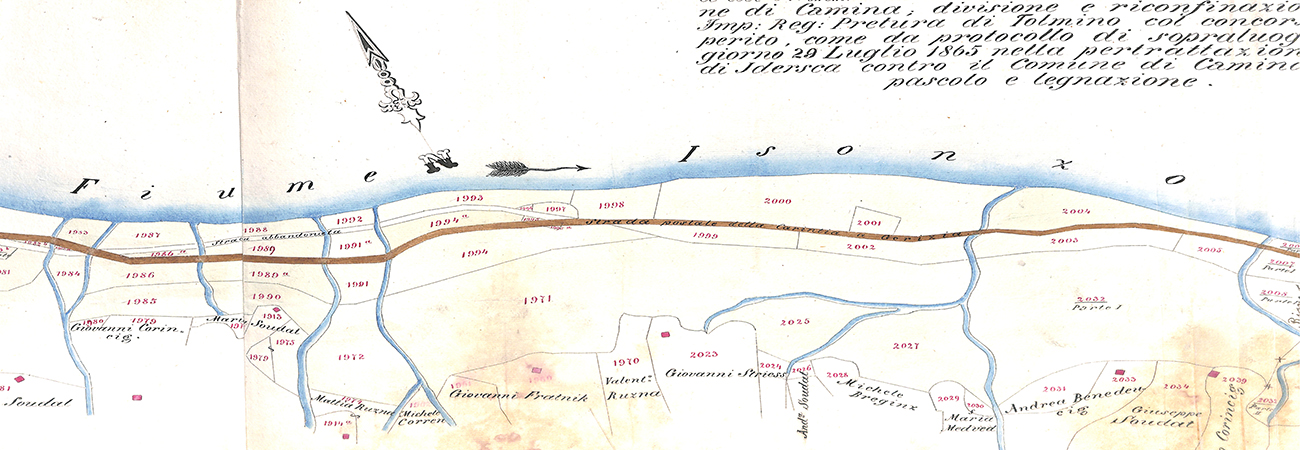 ne di Camina; divisione e riconfinazio
Imp: Reg: Pretura di Tolmino col concors
perito, come da protocollo di sopraluog
giorno 29 Luglio 1865 nella pertrattazion
di Idersca contro il Comune di Camina
pascolo e legnazione.
N
Fiume Isonzo
1993
1998
2000
1997
2001
2004
1992
1994a
1987
1988
Strada abbandonata
1989
1991a
Strada postale della Carintia a Gorizia
1999
2002
2003
2005
1986a
1984
1986
1989a
1991
1994
2007
Parte I
1985
1990
1971
2032
Parte I
2008
1979
1915
2025
Giovanni Corin-
cig.
Maria
Soudat
1975
1979
1972
2027
1970
2023
Valentº
Ruzna
Giovanni Strioss
2024
2026
2028
Andª Soudat
Michele
Breginz
2029
2030
Maria
Medved
2031
2033
2034
2039
Andrea Benedet
cig
Giuseppe
Soudat
Corincig
Soudat
Mattia Ruzna
1914a
Michele
Corren
Giovanni Fratnik